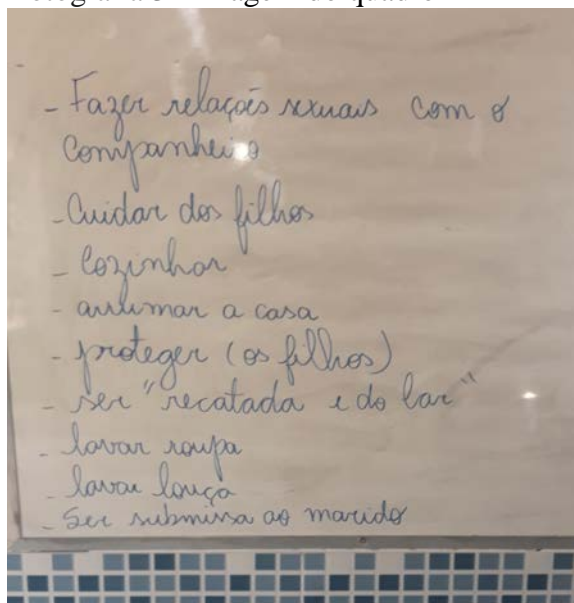 - Fazer relações sexuais com o
companheiro
- Cuidar dos filhos
- Cozinhar
- arrumar a casa
- proteger (os filhos)
- ser "recatada e do lar"
- lavar roupa
- lavar louça
- Ser submissa ao marido